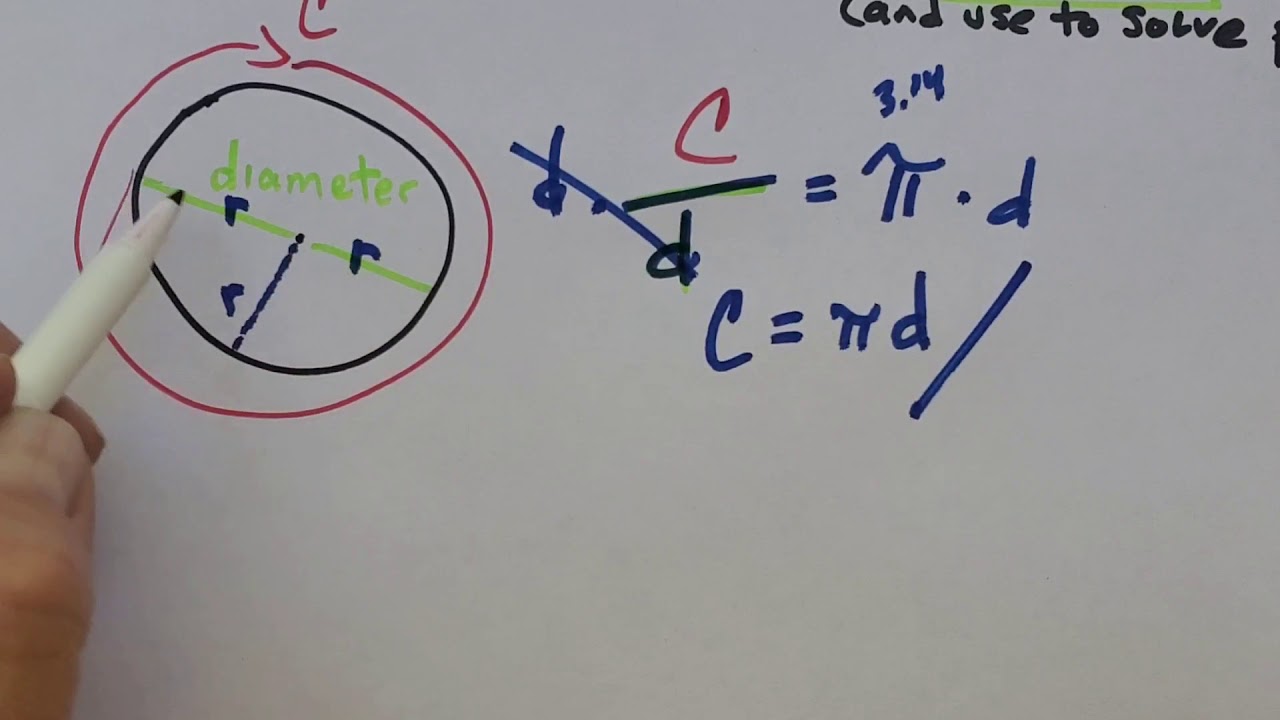 (and use to solve
C
diameter
r
r
r
3.14
d · C/d = π · d
C = πd